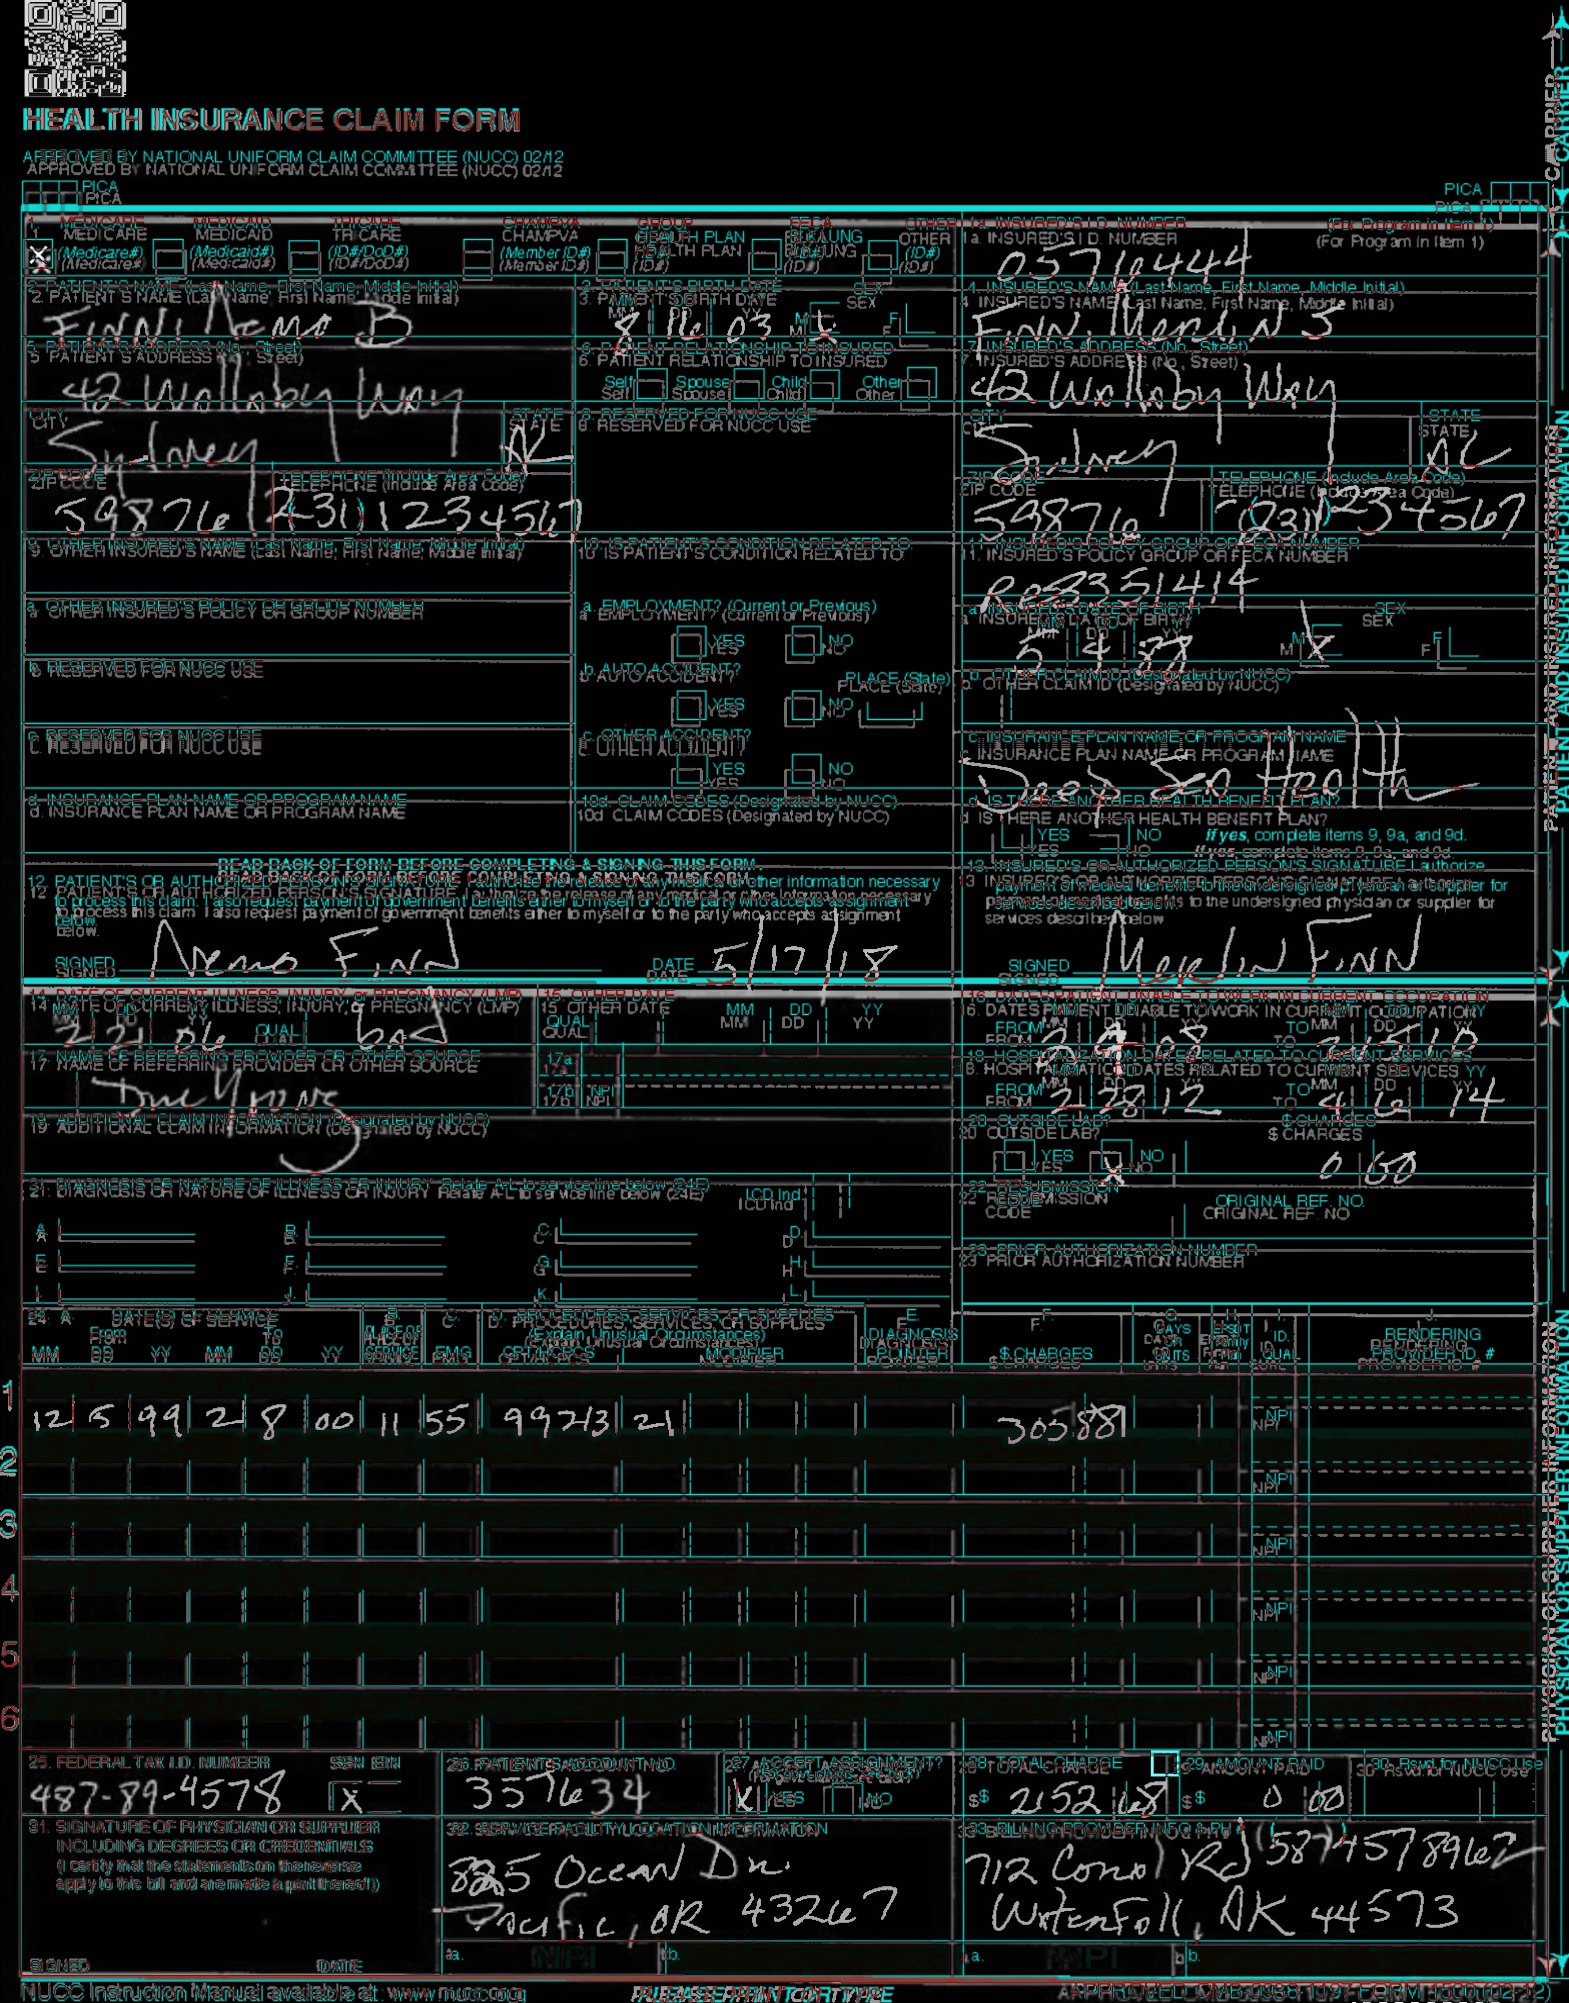 HEALTH INSURANCE CLAIM FORM
APPROVED BY NATIONAL UNIFORM CLAIM COMMITTEE (NUCC) 02/12
PICA PICA
1. MEDICARE MEDICAID TRICARE CHAMPVA GROUP HEALTH PLAN FECA BLK LUNG OTHER
(Medicare#) (Medicaid#) (ID#/DoD#) (Member ID#) (ID#) (ID#) (ID#)
1a. INSURED'S I.D. NUMBER (For Program in Item 1)
05716444
2. PATIENT'S NAME (Last Name, First Name, Middle Initial)
FINN, Nemo B
3. PATIENT'S BIRTH DATE SEX
MM DD YY
8 16 03 M X F
4. INSURED'S NAME (Last Name, First Name, Middle Initial)
FINN, Merlin J
5. PATIENT'S ADDRESS (No., Street)
42 Wallaby Way
6. PATIENT RELATIONSHIP TO INSURED
Self Spouse Child Other
7. INSURED'S ADDRESS (No., Street)
42 Wallaby Way
CITY STATE
Sydney AK
8. RESERVED FOR NUCC USE
CITY STATE
Sydney
ZIP CODE TELEPHONE (Include Area Code)
59876 (231) 1234567
ZIP CODE TELEPHONE (Include Area Code)
59876 (231) 1234567
9. OTHER INSURED'S NAME (Last Name, First Name, Middle Initial)
10. IS PATIENT'S CONDITION RELATED TO:
11. INSURED'S POLICY GROUP OR FECA NUMBER
a. OTHER INSURED'S POLICY OR GROUP NUMBER
a. EMPLOYMENT? (Current or Previous)
YES NO
a. INSURED'S DATE OF BIRTH SEX
MM DD YY
5 4 88 M X F
b. RESERVED FOR NUCC USE
b. AUTO ACCIDENT? PLACE (State)
YES NO
b. OTHER CLAIM ID (Designated by NUCC)
c. RESERVED FOR NUCC USE
c. OTHER ACCIDENT?
YES NO
c. INSURANCE PLAN NAME OR PROGRAM NAME
Deep Sea Health
d. INSURANCE PLAN NAME OR PROGRAM NAME
10d. CLAIM CODES (Designated by NUCC)
d. IS THERE ANOTHER HEALTH BENEFIT PLAN?
YES NO If yes, complete items 9, 9a, and 9d.
READ BACK OF FORM BEFORE COMPLETING & SIGNING THIS FORM.
12. PATIENT'S OR AUTHORIZED PERSON'S SIGNATURE I authorize the release of any medical or other information necessary
to process this claim. I also request payment of government benefits either to myself or to the party who accepts assignment
below.
SIGNED Nemo Finn DATE 5/17/18
13. INSURED'S OR AUTHORIZED PERSON'S SIGNATURE I authorize
payment of medical benefits to the undersigned physician or supplier for
services described below.
SIGNED Merlin Finn
14. DATE OF CURRENT ILLNESS, INJURY, or PREGNANCY (LMP)
MM DD YY
2 21 06 QUAL. bad
15. OTHER DATE
QUAL. MM DD YY
16. DATES PATIENT UNABLE TO WORK IN CURRENT OCCUPATION
MM DD YY MM DD YY
FROM TO
17. NAME OF REFERRING PROVIDER OR OTHER SOURCE
17a.
17b. NPI
18. HOSPITALIZATION DATES RELATED TO CURRENT SERVICES
MM DD YY MM DD YY
FROM 2 28 12 TO 4 6 14
19. ADDITIONAL CLAIM INFORMATION (Designated by NUCC)
20. OUTSIDE LAB? $ CHARGES
YES X NO 0 00
21. DIAGNOSIS OR NATURE OF ILLNESS OR INJURY Relate A-L to service line below (24E) ICD Ind.
A. B. C. D.
E. F. G. H.
I. J. K. L.
22. RESUBMISSION CODE ORIGINAL REF. NO.
23. PRIOR AUTHORIZATION NUMBER
24. A. DATE(S) OF SERVICE B. PLACE OF SERVICE C. EMG D. PROCEDURES, SERVICES, OR SUPPLIES E. DIAGNOSIS POINTER F. $ CHARGES G. DAYS OR UNITS H. EPSDT Family Plan I. ID. QUAL. J. RENDERING PROVIDER ID. #
From To (Explain Unusual Circumstances)
MM DD YY MM DD YY CPT/HCPCS MODIFIER
1 12 5 99 2 8 00 11 55 99213 21 305 88 NPI
2 NPI
3 NPI
4 NPI
5 NPI
6 NPI
25. FEDERAL TAX I.D. NUMBER SSN EIN
487-89-4578 X
26. PATIENT'S ACCOUNT NO.
357634
27. ACCEPT ASSIGNMENT?
(For govt. claims, see back)
X YES NO
28. TOTAL CHARGE
$ 2152 68
29. AMOUNT PAID
$ 0 00
30. Rsvd for NUCC Use
31. SIGNATURE OF PHYSICIAN OR SUPPLIER
INCLUDING DEGREES OR CREDENTIALS
(I certify that the statements on the reverse
apply to this bill and are made a part thereof.)
SIGNED DATE
32. SERVICE FACILITY LOCATION INFORMATION
825 Ocean Dr.
Pacific, OR 43267
a. NPI b.
33. BILLING PROVIDER INFO & PH #
(587) 4578962
712 Coral Rd
Waterfall, AK 44573
a. NPI b.
NUCC Instruction Manual available at: www.nucc.org
PLEASE PRINT OR TYPE
APPROVED OMB-0938-1197 FORM 1500 (02-12)
CARRIER
PATIENT AND INSURED INFORMATION
PHYSICIAN OR SUPPLIER INFORMATION